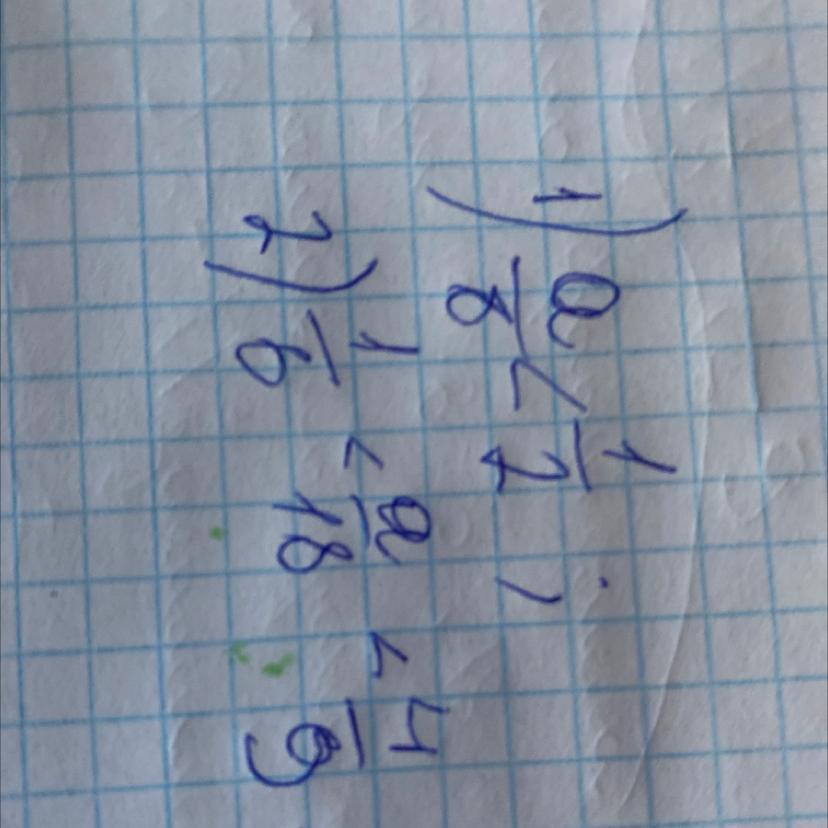 1) a/8 < 1/2 ;
2) 1/6 < a/18 < 4/9